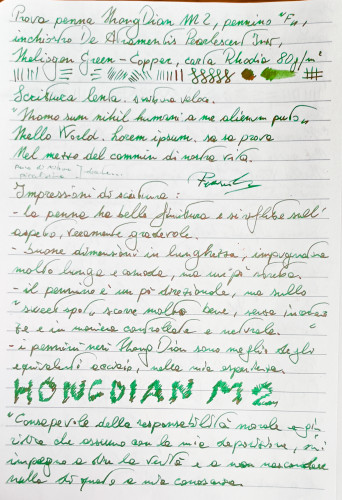 Prova penna HongDian M2, pennino "F",
inchiostro De Atramentis Pearlescent Ink,
Heliogen Green - Copper, carta Rhodia 80g/m²
Scrittura lenta. scrittura veloce.
"Homo sum nihil humani a me alienum puto"
Hello World. Lorem ipsum. sa sa prova
Nel mezzo del cammin di nostra vita.
Impressioni di scrittura:
- la penna ha belle finitura e si riflette sull'
aspetto, veramente gradevole.
- buone dimensioni in lunghezza, impugnatura
molto lunga e comoda, ma un pò
- il pennino è un pò direzionale, ma sullo
"sweet spot" scorre molto bene, senza incertez
ze e in maniera controllata e naturale.
- i pennini neri HongDian sono meglio degli
equivalenti acciaio, nella mia esperienza.
HONGDIAN M2
"Consapevole della responsabilità morale e giu
ridica che assumo con la mia deposizione, mi
impegno a dire la verità e a non nascondere
nulla di quanto a mia conoscenza.